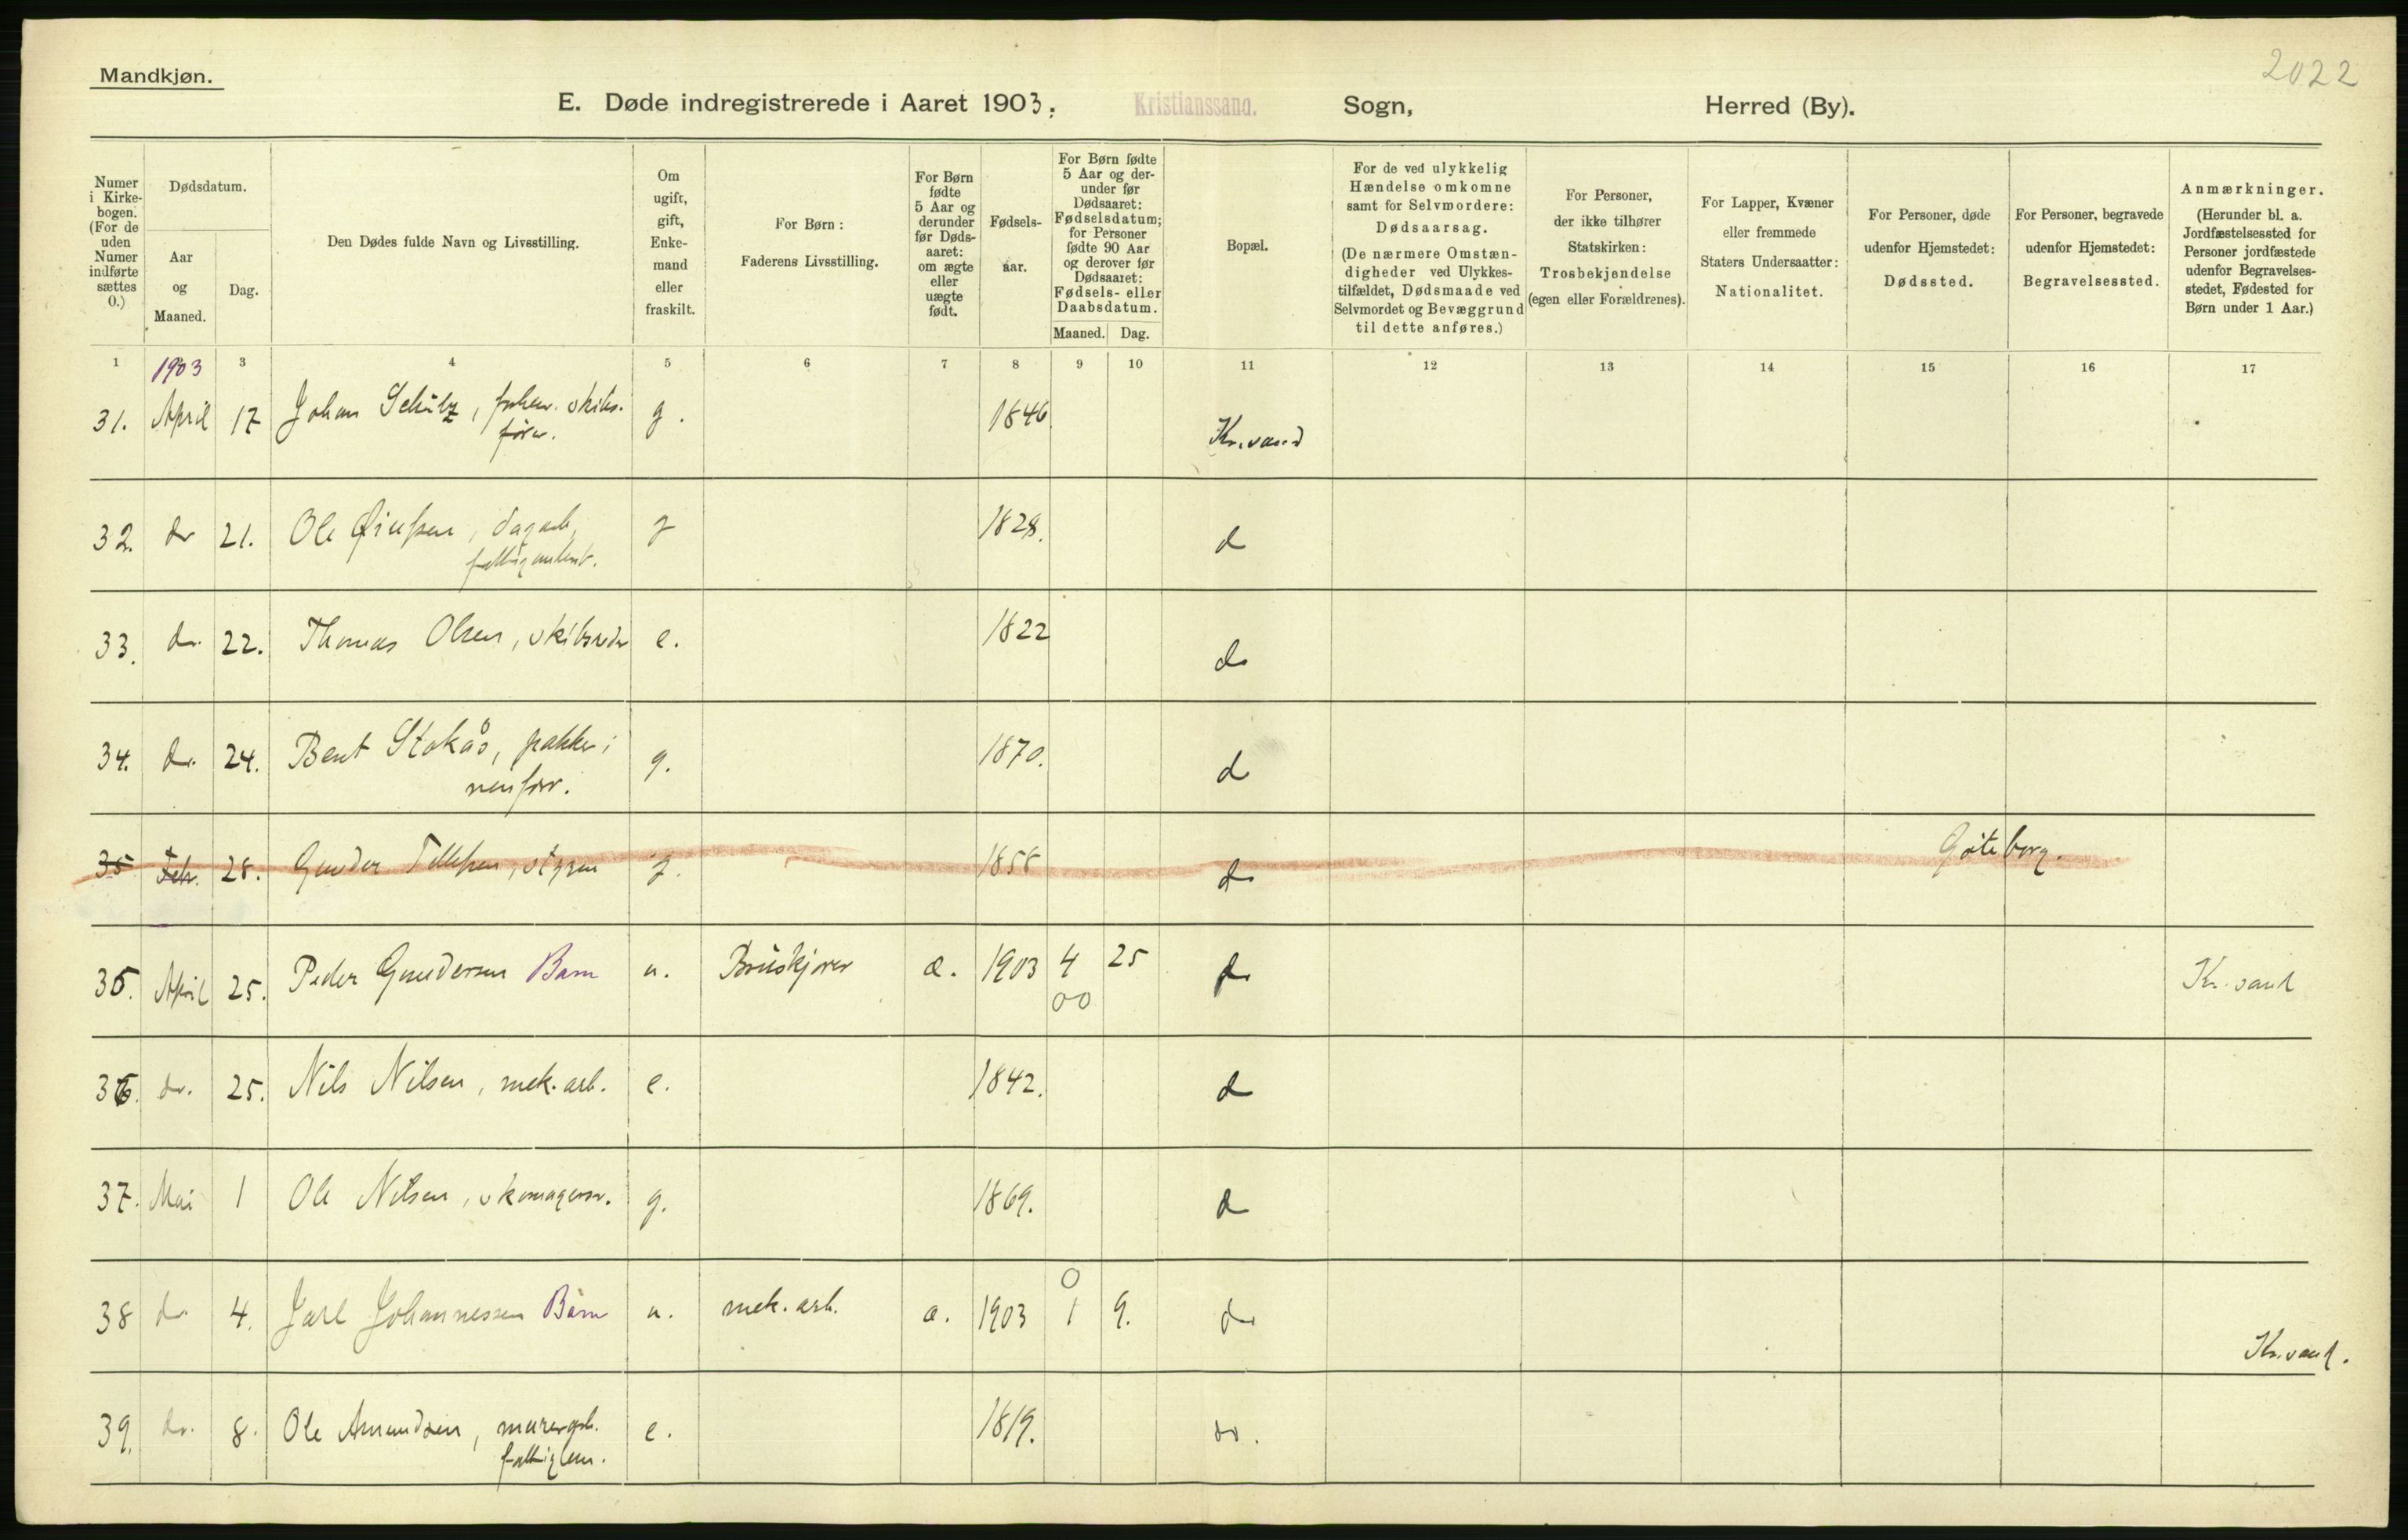 Mandkjøn.
2022
E. Døde indregistrerede i Aaret 1903. Kristianssand. Sogn, Herred (By).
Numer i Kirkebogen. (For de uden Numer indførte sættes 0.)
Dødsdatum.
Aar og Maaned.
Dag.
Den Dødes fulde Navn og Livsstilling.
Om ugift, gift, Enkemand eller fraskilt.
For Børn: Faderens Livsstilling.
For Børn fødte 5 Aar og derunder før Dødsaaret: om ægte eller uægte født.
Fødselsaar.
For Børn fødte 5 Aar og derunder før Dødsaaret: Fødselsdatum; for Personer fødte 90 Aar og derover før Dødsaaret: Fødsels- eller Daabsdatum.
Maaned. Dag.
Bopæl.
For de ved ulykkelig Hændelse omkomne samt for Selvmordere: Dødsaarsag. (De nærmere Omstændigheder ved Ulykkestilfældet, Dødsmaade ved Selvmordet og Bevæggrund til dette anføres.)
For Personer, der ikke tilhører Statskirken: Trosbekjendelse (egen eller Forældrenes).
For Lapper, Kvæner eller fremmede Staters Undersaatter: Nationalitet.
For Personer, døde udenfor Hjemstedet: Dødssted.
For Personer, begravede udenfor Hjemstedet: Begravelsessted.
Anmærkninger. (Herunder bl. a. Jordfæstelsessted for Personer jordfæstede udenfor Begravelsesstedet, Fødested for Børn under 1 Aar.)
1 2 3 4 5 6 7 8 9 10 11 12 13 14 15 16 17
1903
31. April 17 Johan Schülz, forhenv. skibs- g. 1846 Kr.sand
fører.
32. do 21. Ole , dagarb, g 1828. do
fattigunderst.
33. do. 22. Thomas Olsen, skibsreder e. 1822 do
34. do. 24. Bent Stokås, pakker i g. 1870. do
35 Feb. 28. Gunder Tellefsen, styrm g. 1858 do Göteborg.
35. April 25. Peder Gundersen Barn u. Bruskjører æ. 1903 4 25 do Kr.sand
00
36. do. 25. Nils Nilsen, mek. arb. e. 1842. do
37. Mai 1 Ole Nilsen, skomagersv. g. 1869. do
38 do 4. Jarl Johannessen Barn u. mek. arb. æ. 1903 1 9. do Kr.sand.
0
39. do. 8. Ole Amundsen, murerarb. e. 1819. do.
fattiglem.